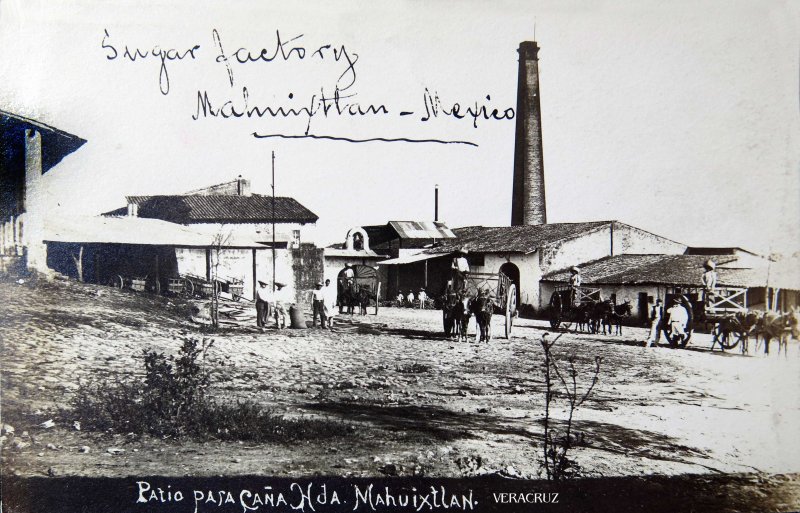 Sugar factory
Mahuixtlan - Mexico
Patio para Caña Hda. Mahuixtlan. VERACRUZ